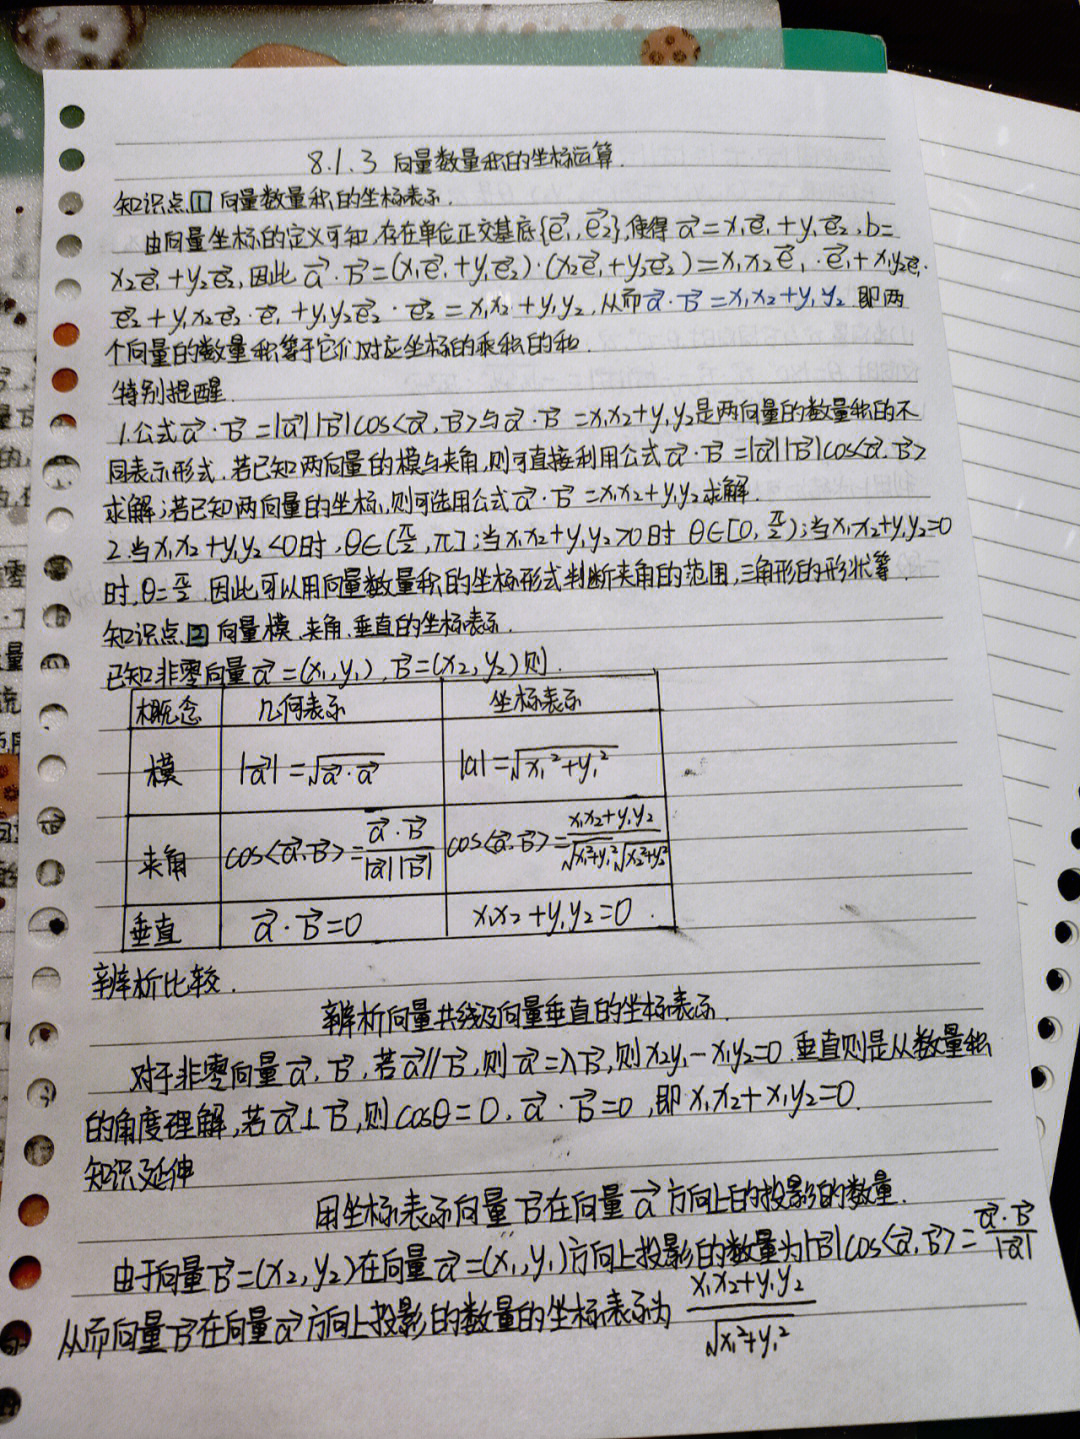 8.1.3 向量数量积的坐标运算.
知识点1 向量数量积的坐标表示.
由向量坐标的定义可知,存在单位正交基底{e₁⃗,e₂⃗},使得a⃗=x₁e₁⃗+y₁e₂⃗,b=
x₂e₁⃗+y₂e₂⃗,因此a⃗·b⃗=(x₁e₁⃗+y₁e₂⃗)·(x₂e₁⃗+y₂e₂⃗)=x₁x₂e₁⃗·e₁⃗+x₁y₂e₁⃗·
e₂⃗+y₁x₂e₂⃗·e₁⃗+y₁y₂e₂⃗·e₂⃗=x₁x₂+y₁y₂,从而a⃗·b⃗=x₁x₂+y₁y₂ 即两
个向量的数量积等于它们对应坐标的乘积的和.
特别提醒.
1.公式a⃗·b⃗=|a⃗||b⃗|cos<a⃗,b⃗>与a⃗·b⃗=x₁x₂+y₁y₂是两向量的数量积的不
同表示形式.若已知两向量的模与夹角,则可直接利用公式a⃗·b⃗=|a⃗||b⃗|cos<a⃗,b⃗>
求解;若已知两向量的坐标,则可选用公式a⃗·b⃗=x₁x₂+y₁y₂求解.
2.当x₁x₂+y₁y₂<0时,θ∈(π/2,π];当x₁x₂+y₁y₂>0时 θ∈[0,π/2);当x₁x₂+y₁y₂=0
时,θ=π/2.因此可以用向量数量积的坐标形式判断夹角的范围,三角形的形状等.
知识点2 向量模.夹角.垂直的坐标表示.
已知非零向量a⃗=(x₁,y₁),b⃗=(x₂,y₂)则.
概念 几何表示 坐标表示
模 |a⃗|=√(a⃗·a⃗) |a|=√(x₁²+y₁²)
夹角 cos<a⃗,b⃗>=(a⃗·b⃗)/(|a⃗||b⃗|) cos<a⃗,b⃗>=(x₁x₂+y₁y₂)/(√(x₁²+y₁²)√(x₂²+y₂²))
垂直 a⃗·b⃗=0 x₁x₂+y₁y₂=0.
辨析比较.
辨析向量共线及向量垂直的坐标表示.
对于非零向量a⃗,b⃗,若a⃗//b⃗,则a⃗=λb⃗,则x₂y₁-x₁y₂=0.垂直则是从数量积
的角度理解,若a⃗⊥b⃗,则cosθ=0,a⃗·b⃗=0,即x₁x₂+x₁y₂=0.
知识延伸
用坐标表示向量b⃗在向量a⃗方向上的投影的数量.
由于向量b⃗=(x₂,y₂)在向量a⃗=(x₁,y₁)方向上投影的数量为|b⃗|cos<a⃗,b⃗>=(a⃗·b⃗)/|a⃗|
从而向量b⃗在向量a⃗方向上投影的数量的坐标表示为 (x₁x₂+y₁y₂)/√(x₁²+y₁²)